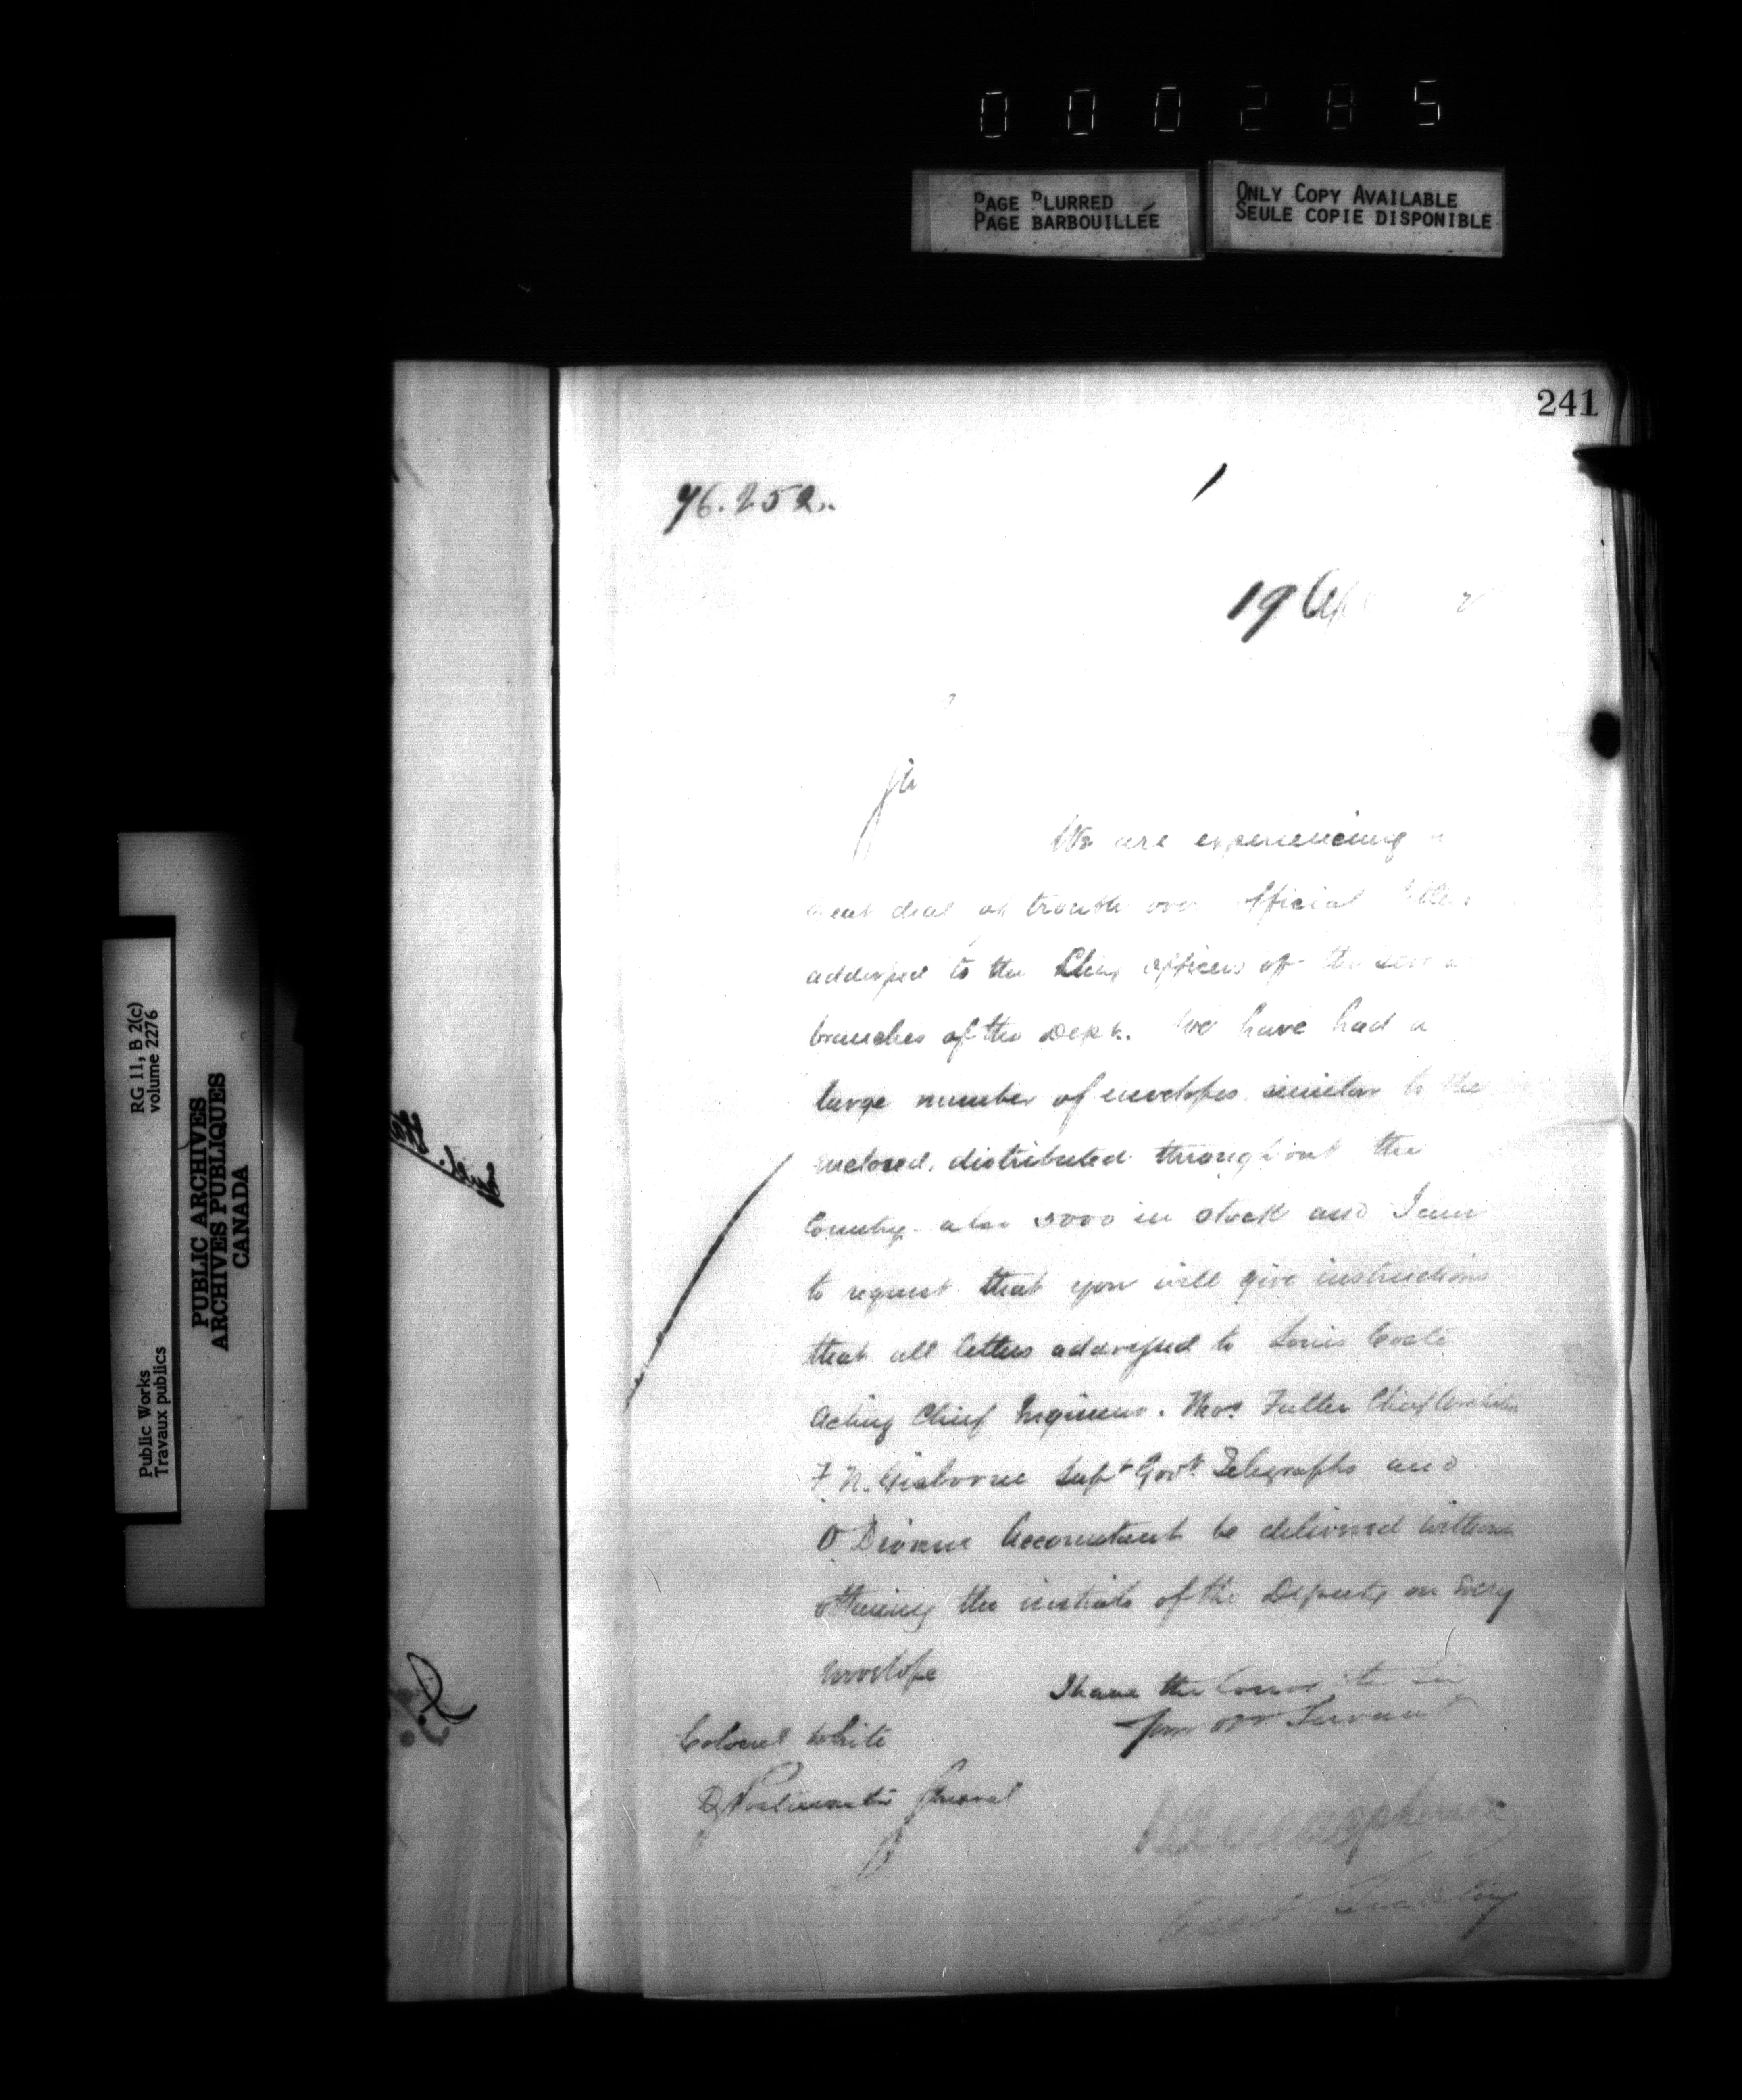 000285
PAGE BLURRED
PAGE BARBOUILLÉE
ONLY COPY AVAILABLE
SEULE COPIE DISPONIBLE
241
76.252.
19 Ap
Sir
We are experiencing a
great deal of trouble over official letters
addressed to the Chief officers of the
branches of the Dept. We have had a
large number of envelopes similar to the
enclosed, distributed throughout the
Country - also 5000 in stock and I am
to request that you will give instructions
that all letters addressed to Louis Coste
Acting Chief Engineer. Thos Fuller Chief Architect
F. N. Gisborne Supt Govt Telegraphs and
O Dionne Accountant be delivered without
obtaining the initials of the Deputy on every
envelope
I have the honor to be Sir
Your obt Servant
Colonel White
D Postmaster General
RG 11, B 2(c)
volume 2276
Public Works
Travaux publics
PUBLIC ARCHIVES
ARCHIVES PUBLIQUES
CANADA